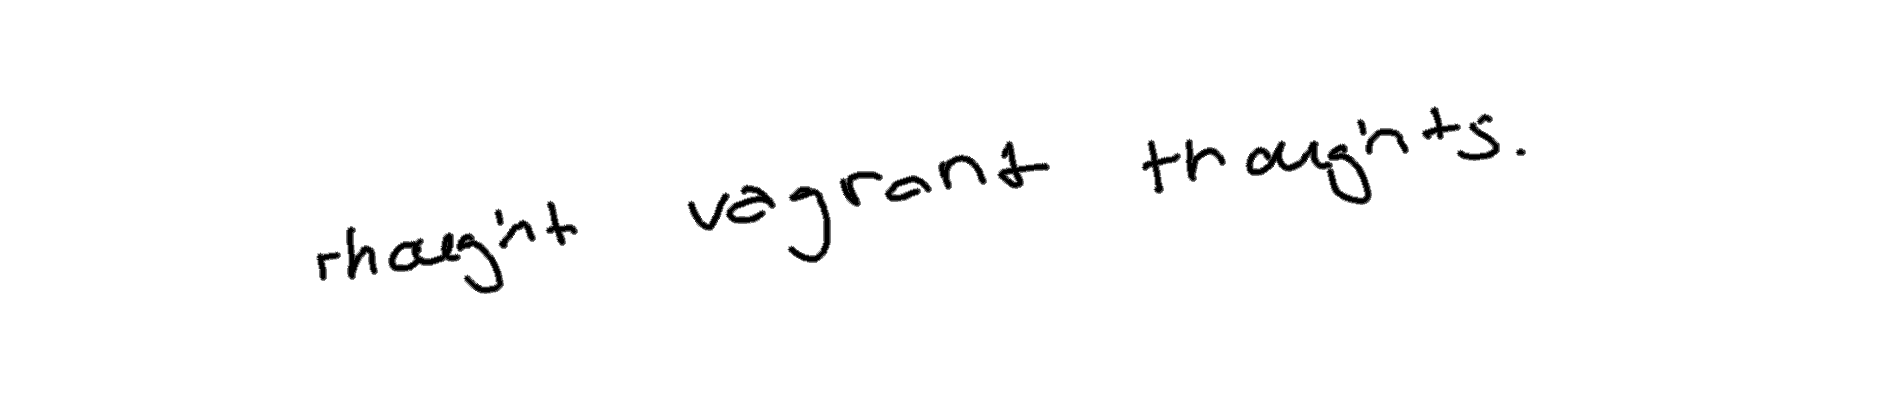 thought vagrant thoughts.